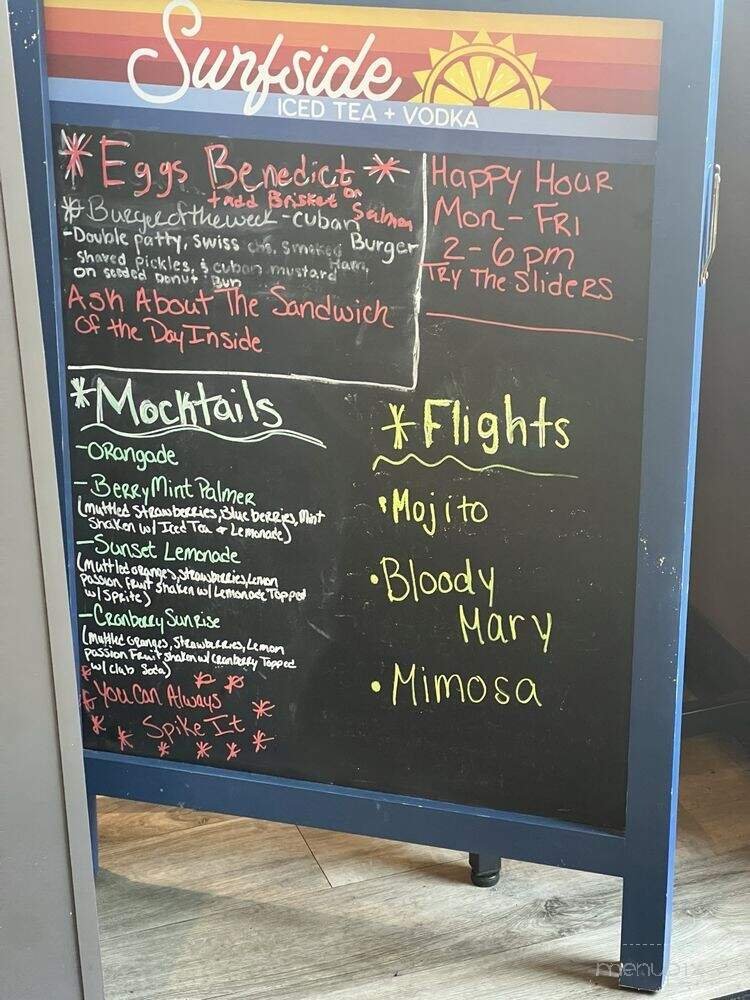 Surfside
ICED TEA + VODKA
*Eggs Benedict*
+ add Brisket or
Salmon
*Burger of the week - Cuban
Burger
-Double patty, swiss chs, smoked
Ham,
shaved pickles, & cuban mustard
on seeded Donut Bun
Ask About The Sandwich
Of the Day Inside
Happy Hour
Mon - Fri
2 - 6 pm
Try The Sliders
*Mocktails
-Orangade
-Berry Mint Palmer
(muttled Strawberries, Blueberries, Mint
Shaken w/ Iced Tea & Lemonade)
-Sunset Lemonade
(muttled oranges, strawberries, Lemon
passion fruit shaken w/ Lemonade Topped
w/ Sprite)
-Cranberry Sunrise
(muttled oranges, Strawberries, Lemon
passion Fruit shaken w/ Cranberry Topped
w/ club Soda)
You Can Always
Spike It
*Flights
•Mojito
•Bloody
Mary
•Mimosa